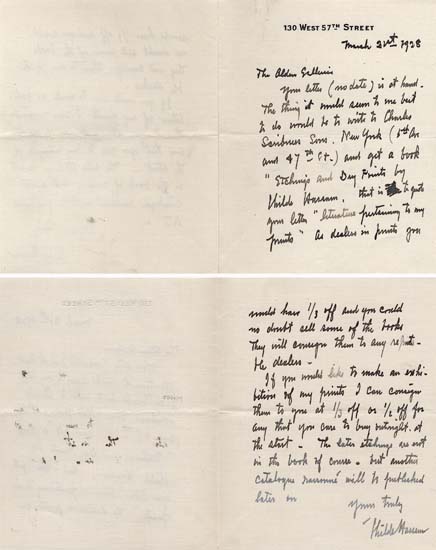 130 WEST 57TH STREET
March 21st 1928
The Alden Galleries
Your letter (no date) is at hand.
The thing it would seem to me best
to do would be to write to Charles
Scribners Sons. New York (5th Av
and 47th St.) and get a book
"Etchings and Dry Points by
Childe Hassam. that is to quote
your letter "literature pertaining to my
prints" As dealers in prints you
would have 1/3 off and you could
no doubt sell some of the books
They will consign them to any reput-
ble dealers -
If you would like to make an exhi-
bition of my prints I can consign
them to you at 1/3 off or 1/2 off for
any that you care to buy outright. at
the start - The later etchings are not
in this book of course. but another
catalogue raisonné will be published
later on
Yours truly
Childe Hassam
130 WEST 57TH STREET